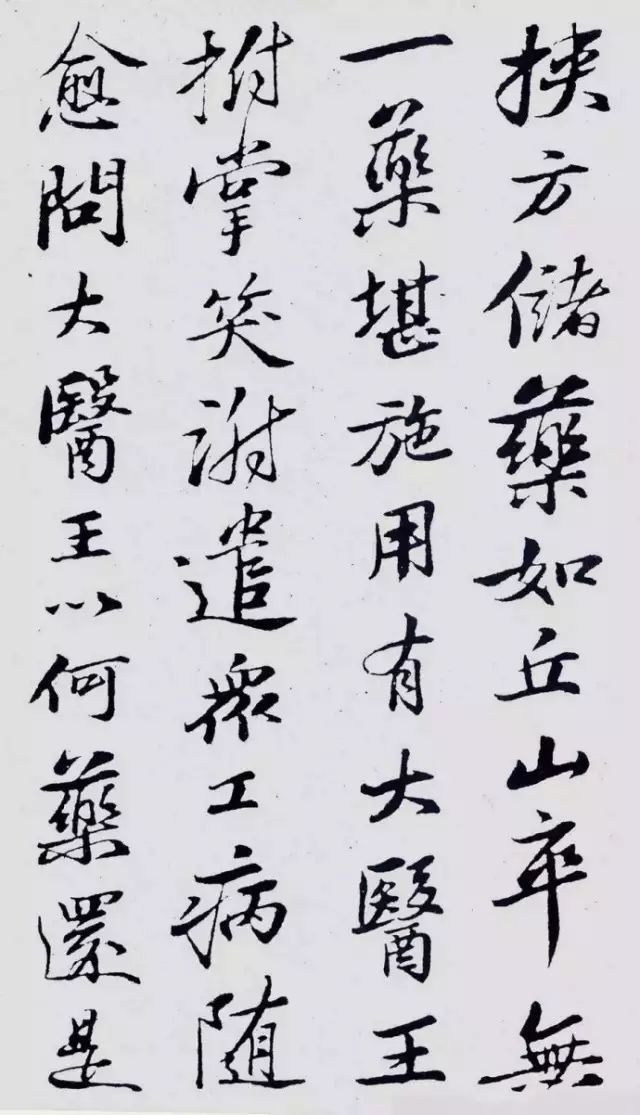 挾方儲藥如丘山卒無
一藥堪施用有大醫王
拊掌笑謝遣眾工病隨
愈問大醫王以何藥還是